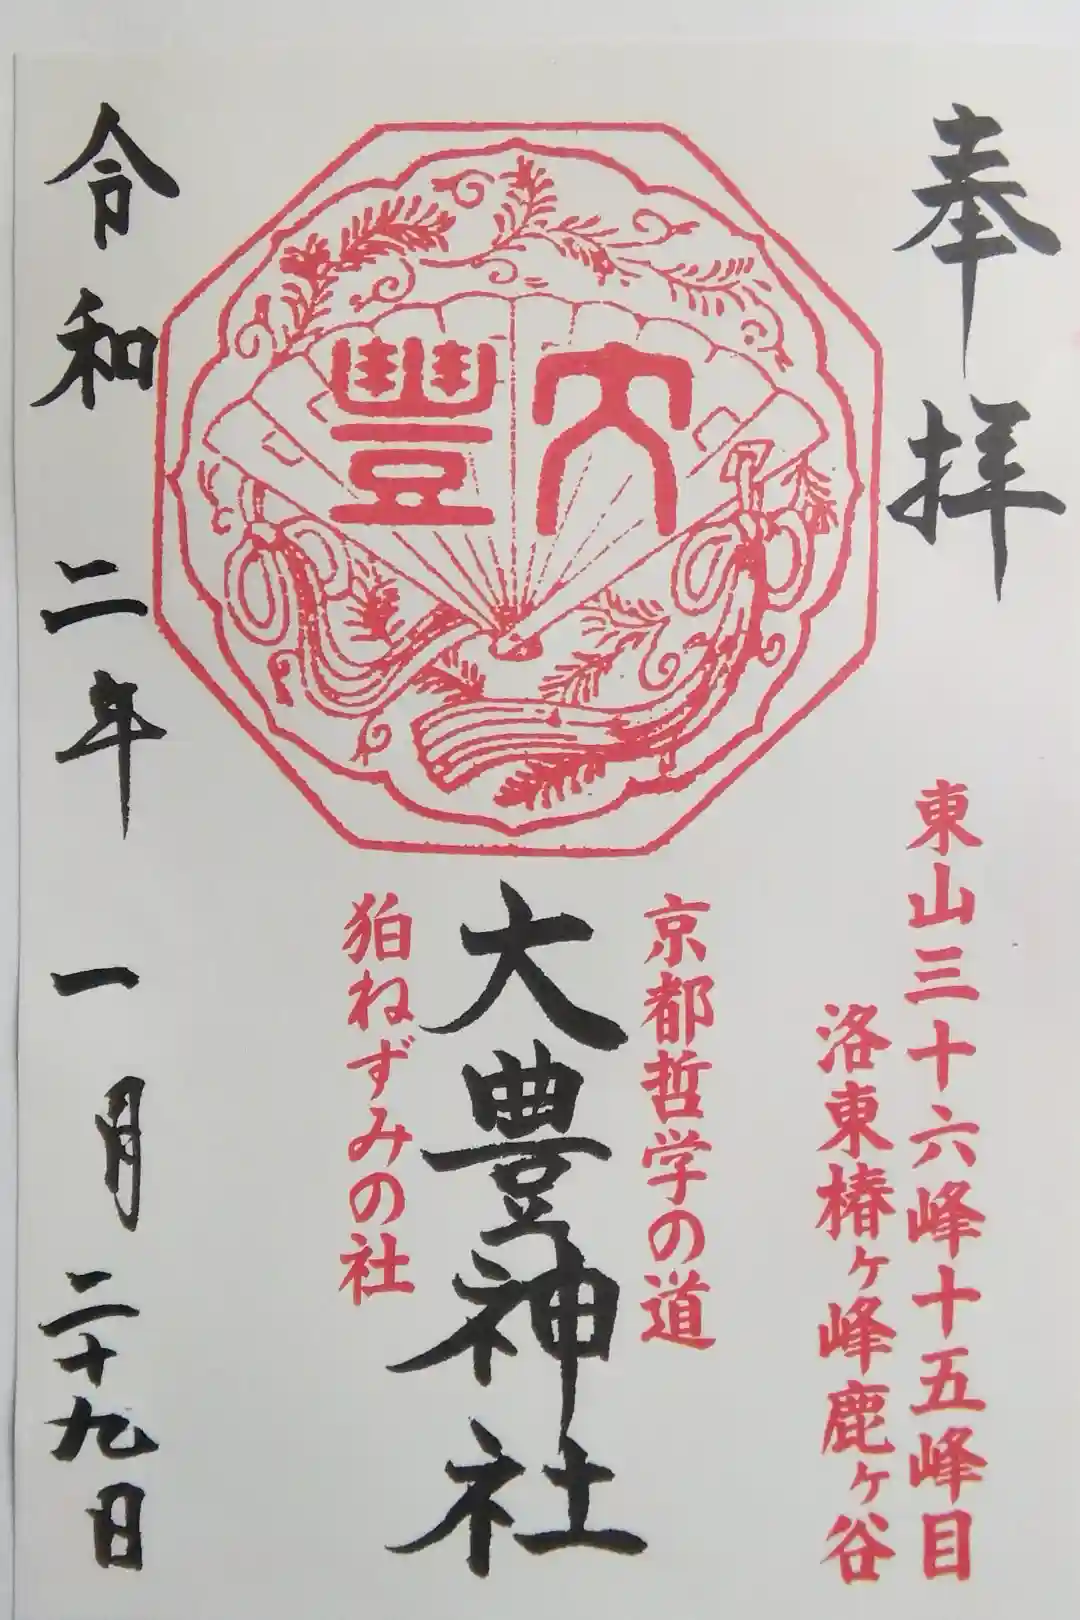 奉拝
東山三十六峰十五峰目
洛東椿ヶ峰鹿ヶ谷
大豐
京都哲学の道
大豊神社
狛ねずみの社
令和二年一月二十九日